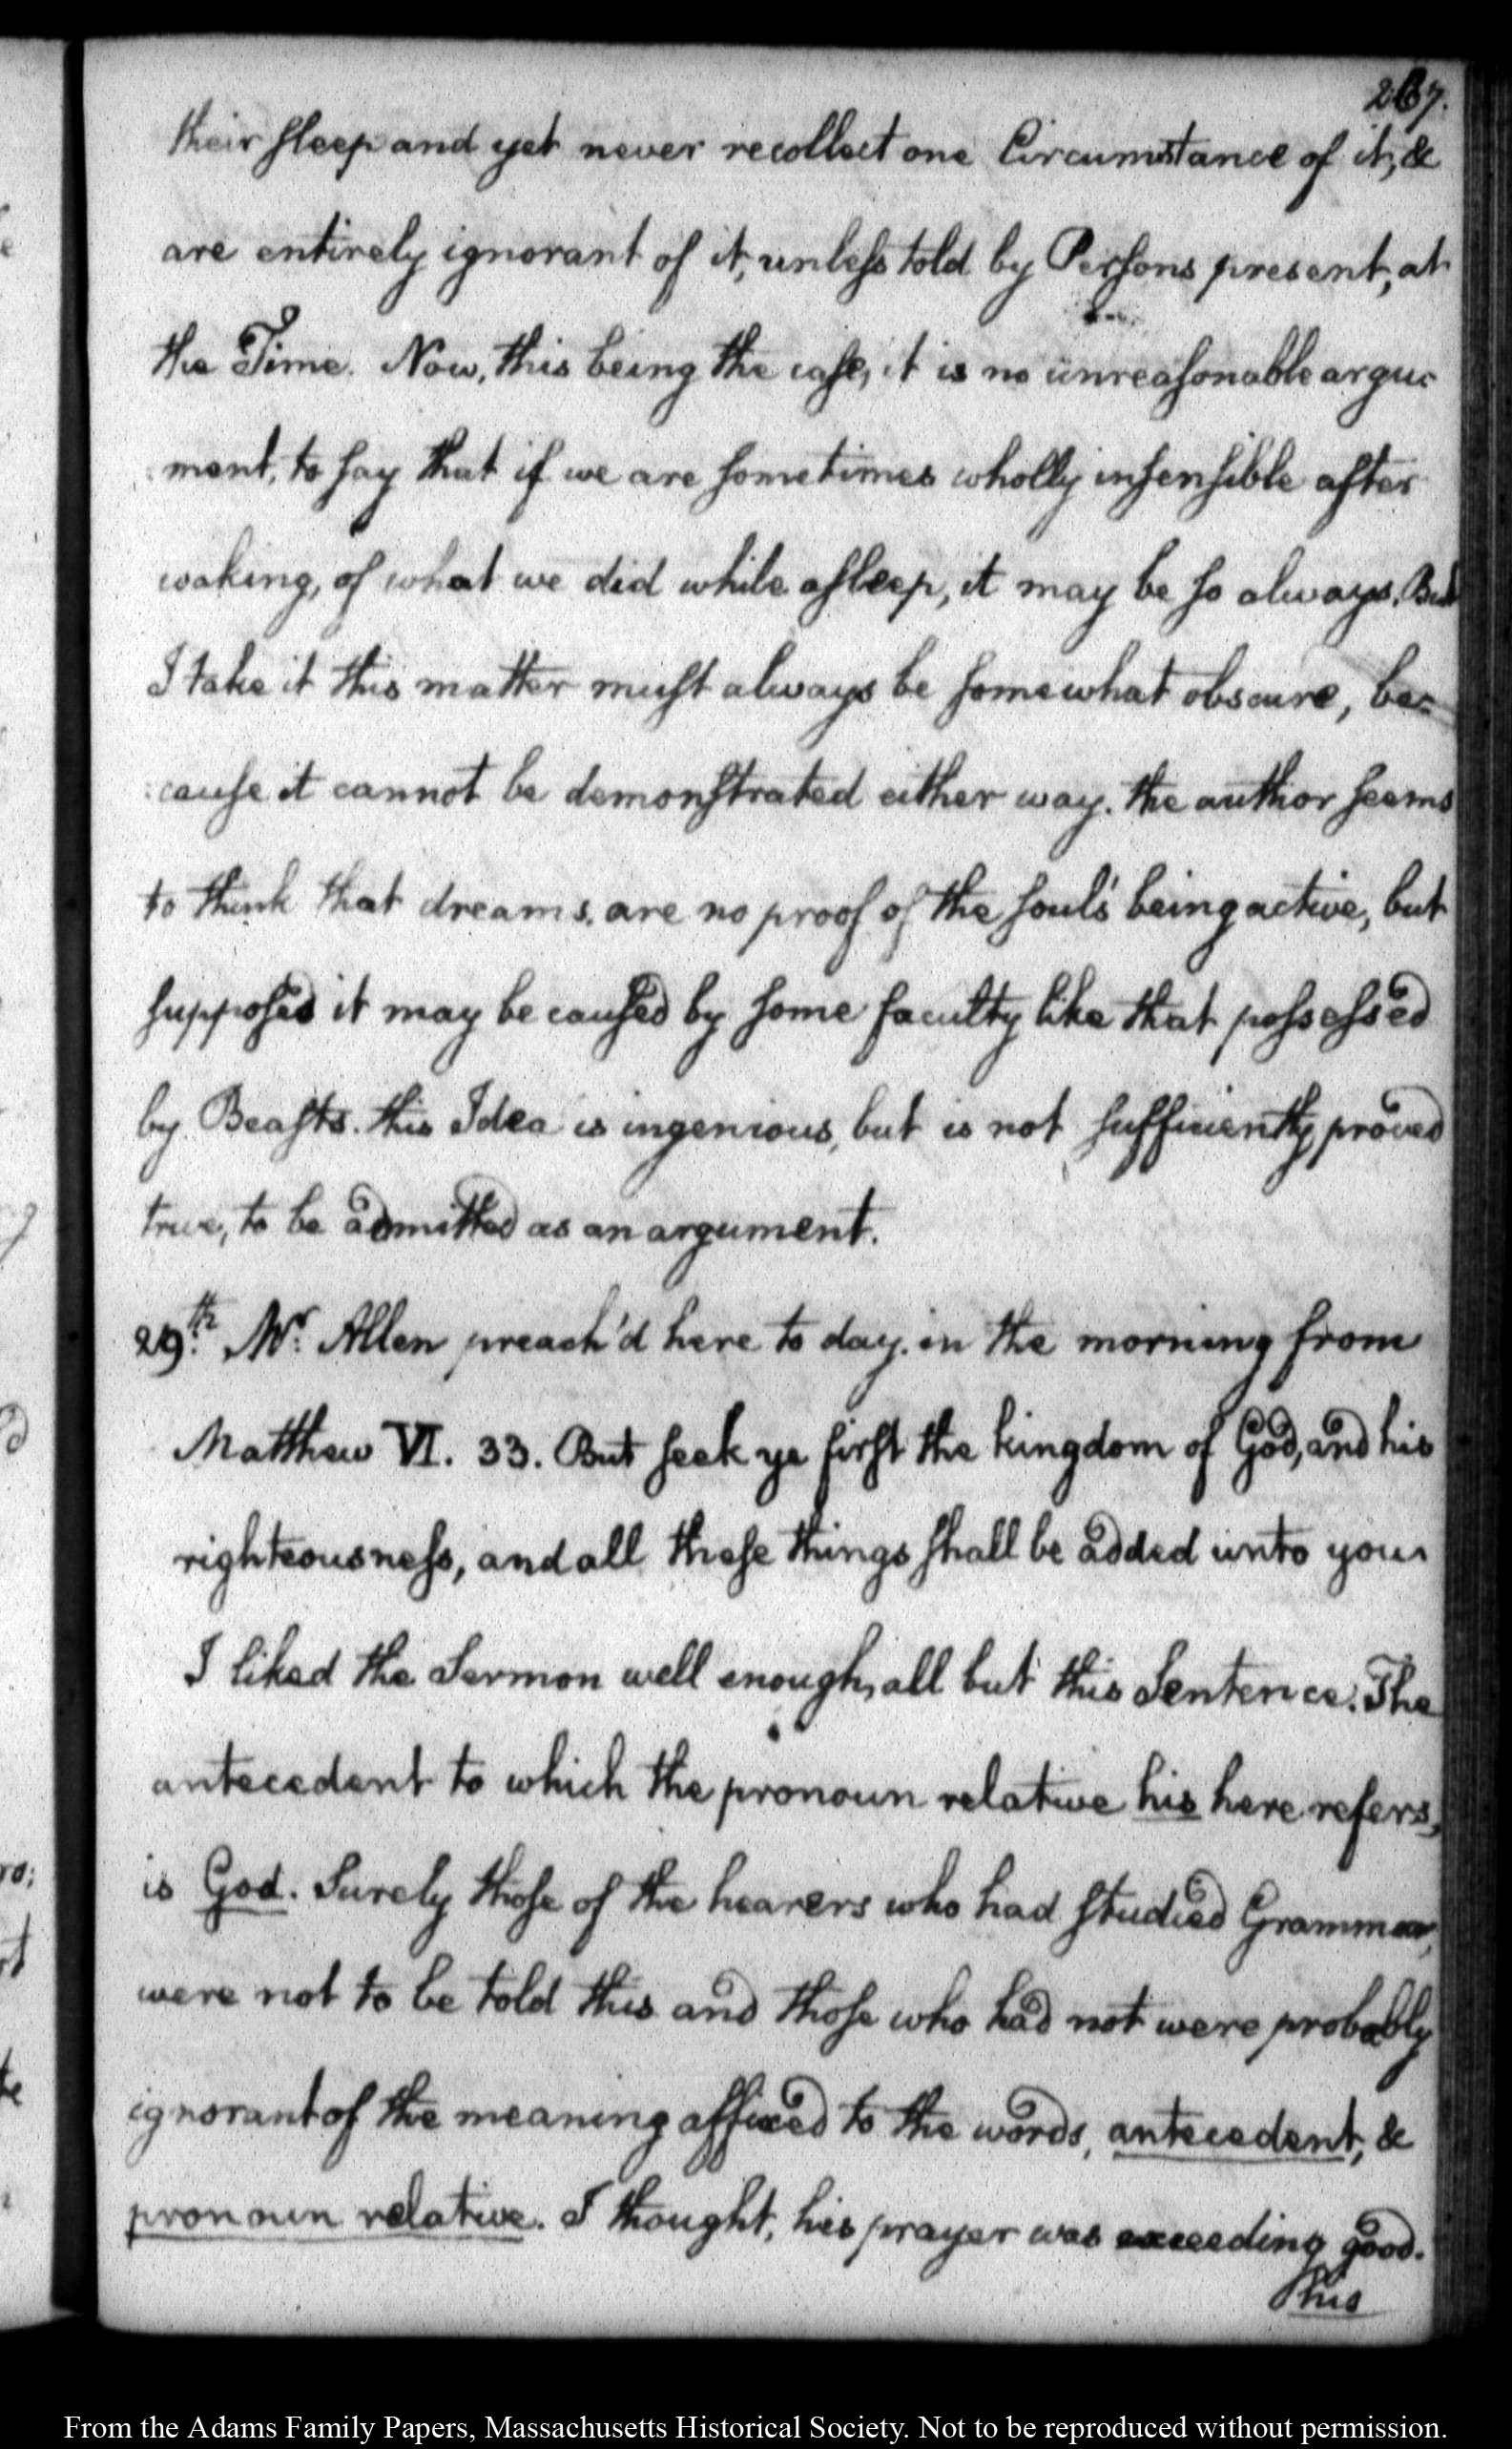 267.
their sleep and yet never recollect one Circumstance of it, &
are entirely ignorant of it, unless told by Persons present, at
the Time. Now, this being the case, it is no unreasonable argu-
ment, to say that if we are sometimes wholly insensible after
waking, of what we did while asleep, it may be so always. But
I take it this matter must always be somewhat obscure, be=
cause it cannot be demonstrated either way. the author seems
to think that dreams. are no proof of the soul's being active, but
supposed it may be caused by some faculty like that possessed
by Beasts. this Idea is ingenious, but is not sufficiently proved
true, to be admitted as an argument.
29th. Mr. Allen preach'd here to day. in the morning from
Matthew VI. 33. But seek ye first the kingdom of God, and his
righteousness, and all these things shall be added unto you.
I liked the Sermon well enough, all but this Sentence. The
antecedent to which the pronoun relative his here refers,
is God. Surely those of the hearers who had studied Grammar,
were not to be told this and those who had not were probably
ignorant of the meaning affixed to the words, antecedent, &
pronoun relative. I thought, his prayer was exceeding good.
This
From the Adams Family Papers, Massachusetts Historical Society. Not to be reproduced without permission.